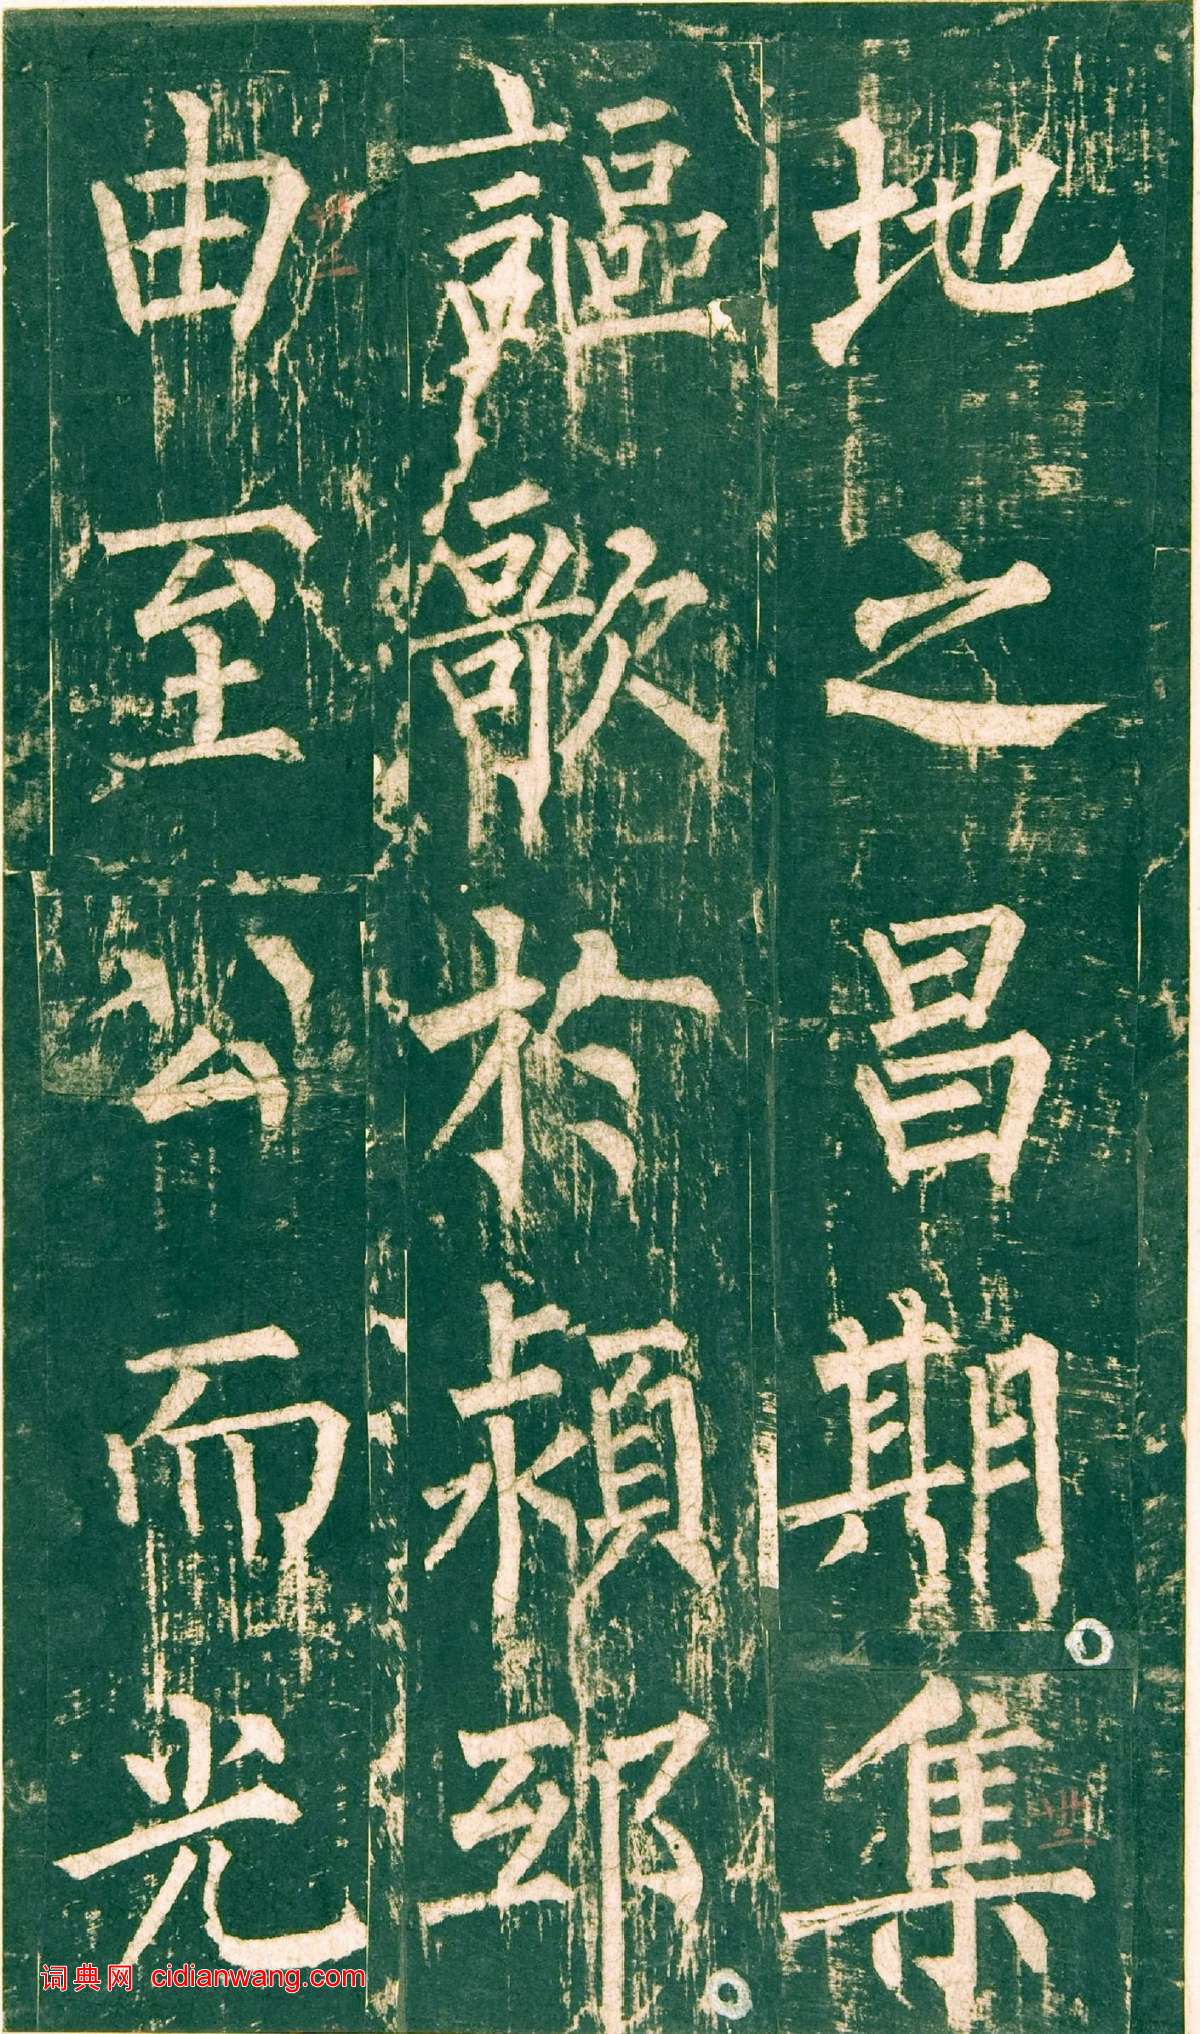 地之昌期集
謳歌於潁邸
由至公而光
词典网 cidianwang.com